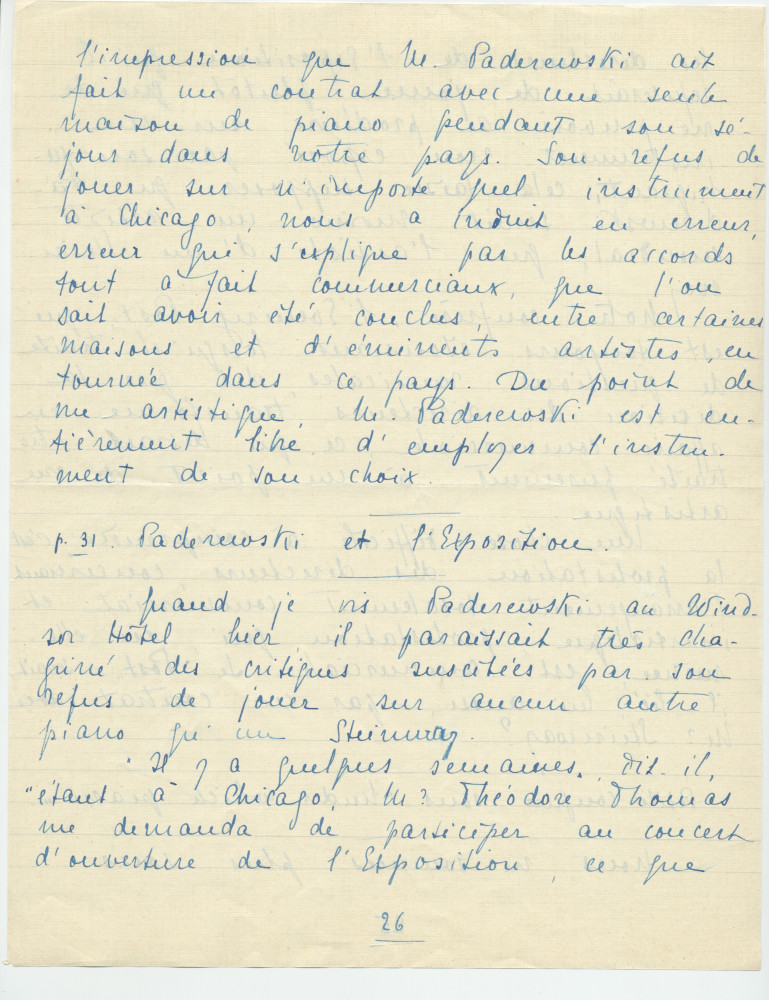 l'impression que M. Paderewski ait
fait un contrat avec une seule
maison de piano pendant son sé-
jour dans notre pays. Son refus de
jouer sur n'importe quel instrument
à Chicago, nous a induit en erreur,
erreur qui s'explique par les accords
tout à fait commerciaux, que l'on
sait avoir été conclus, entre certaines
maisons et d'éminents artistes, en
tournée dans ce pays. Du point de
vue artistique, M. Paderewski est en-
tièrement libre d'employer l'instru-
ment de son choix.
p. 31. Paderewski et l'Exposition.
Quand je vis Paderewski au Wind-
sor Hôtel hier il paraissait très cha-
griné des critiques suscitées par son
refus de jouer sur aucun autre
piano qu'un Steinway.
"Il y a quelques semaines", dit-il,
"étant à Chicago, Mr Théodore Thomas
me demanda de participer au concert
d'ouverture de l'Exposition, ce que
26